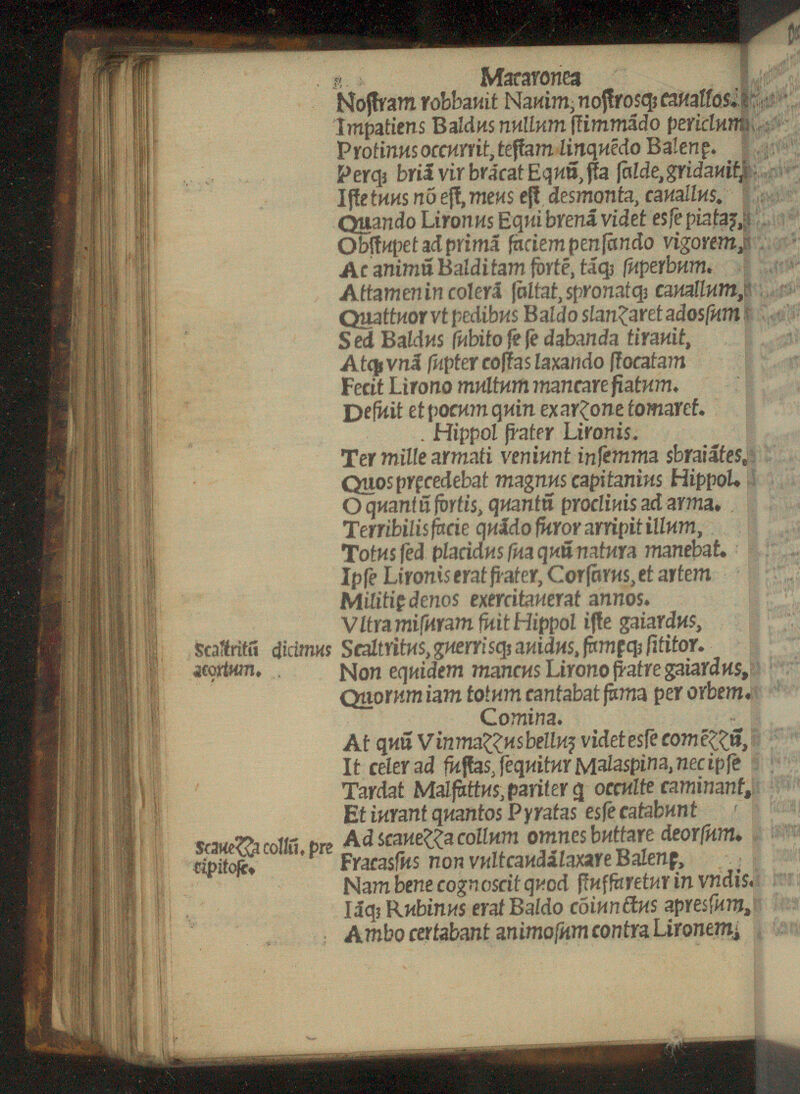 Macaronea
Noſtram robbauit Nauim, noſtrosq; cauallos.
Impatiens Baldus nullum ſtimmãdo periclum
Protinus occurrit, teſtam linquẽdo Balenę.
Perq; briã vir brãcat Equũ, ſta ſalde, gridauit,
Iſte tuus nõ eſt, meus eſt desmonta, cauallus.
Quando Lironus Equi brenã videt esſe piataʒ,
Obſtupet ad primã faciem penſando vigorem,
Ac animũ Baldi tam fortẽ, tãq; ſuperbum.
Attamen in colerã ſaltat, spronatq; cauallum,
Quattuor vt pedibus Baldo slanzaret adosſum
Sed Baldus ſubito ſe ſe dabanda tirauit,
Atq; vnã ſupter coſtas laxando ſtocatam
Fecit Lirono multum mancare fiatum.
Defuit et pocum quin ex arzone tomaret.
Hippol frater Lironis.
Ter mille armati veniunt inſemma sbraiãtes,
Quos pręcedebat magnus capitanius Hippol.
O quantũ fortis, quantũ procliuis ad arma.
Terribilis facie quãdo furor arripit illum,
Totus ſed placidus ſua quũ natura manebat.
Ipſe Lironis erat frater, Corſarus, et artem
Militię denos exercitauerat annos.
Vltra miſuram fuit Hippol iſte gaiardus,
Scaltritũ dicimus acortum.
Scaltritus, guerrisq; auidus, famęq; ſititor.
Non equidem mancus Lirono fratre gaiardus,
Quorum iam totum cantabat fama per orbem.
Comina.
At quũ Vinmazzus belluʒ videt esſe comẽzzũ,
It celer ad fuſtas, ſequitur Malaspina, nec ipſe
Tardat Malfattus, pariter q occulte caminant,
Et iurant quantos Pyratas esſe catabunt
Scauezza collũ, precipitoſe.
Ad scauezza collum omnes buttare deorſum.
Fracasſus non vult caudã laxare Balenę,
Nam bene cognoscit quod ſtuffaretur in vndis.
Iãq; Rubinus erat Baldo cõiunctus apresſum,
Ambo certabant animoſum contra Lironem;